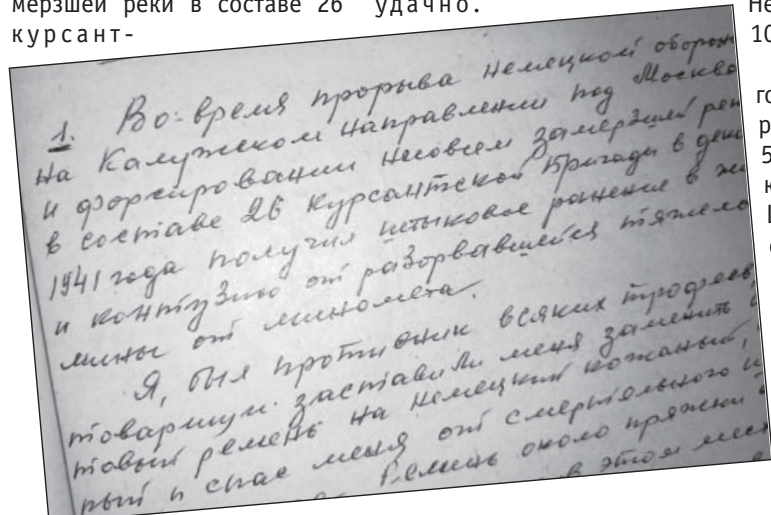 мерзшей реки в составе 26 удачно.
курсант-
1. Во-время прорыва немецкой оборон
на Калужском направлении под Москво
и форсировании несовсем замерзшей рек
в составе 26 курсантской бригады в дек
1941 года получил штыковое ранение в жи
и контузию от разорвавшейся тяжело
мины от миномета.
Я, был противник всяких трофеев,
товарищи заставили меня заменить
товый ремень на немецкий кожаный,
рый и спас меня от смертельного
Ремень около пряжки
в этом мес
Не
10
го
р
5